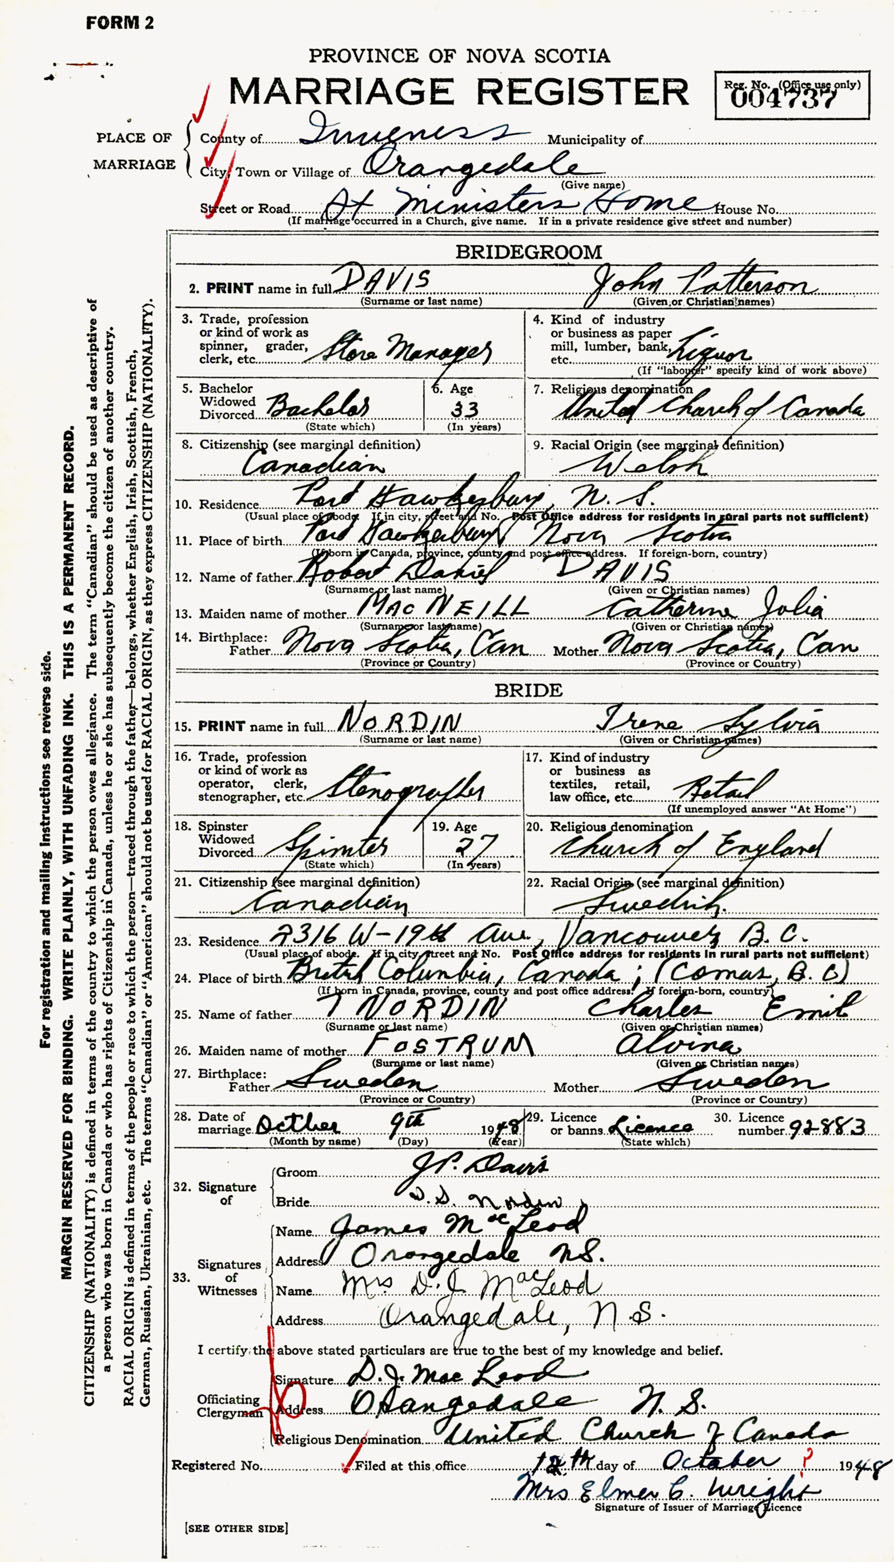 FORM 2
PROVINCE OF NOVA SCOTIA
MARRIAGE REGISTER
Reg. No. (Office use only)
004737
PLACE OF MARRIAGE
County of Inverness Municipality of
City, Town or Village of Orangedale
(Give name)
Street or Road At Ministers Home House No.
(If marriage occurred in a Church, give name. If in a private residence give street and number)
BRIDEGROOM
2. PRINT name in full DAVIS John Patterson
(Surname or last name) (Given or Christian names)
3. Trade, profession or kind of work as spinner, grader, clerk, etc. Store Manager
4. Kind of industry or business as paper mill, lumber, bank, etc. Liquor
(If "labourer" specify kind of work above)
5. Bachelor Widowed Divorced Bachelor
(State which)
6. Age 33
(In years)
7. Religious denomination United Church of Canada
8. Citizenship (see marginal definition) Canadian
9. Racial Origin (see marginal definition) Welsh
10. Residence Port Hawkesbury, N. S.
(Usual place of abode. If in city, street and No. Post Office address for residents in rural parts not sufficient)
11. Place of birth Port Hawkesbury Nova Scotia
(If born in Canada, province, county and post office address. If foreign-born, country)
12. Name of father Robert Daniel DAVIS
(Surname or last name) (Given or Christian names)
13. Maiden name of mother MACNEILL Catherine Julia
(Surname or last name) (Given or Christian names)
14. Birthplace: Father Nova Scotia, Can Mother Nova Scotia, Can
(Province or Country) (Province or Country)
BRIDE
15. PRINT name in full NORDIN Irene Sylvia
(Surname or last name) (Given or Christian names)
16. Trade, profession or kind of work as operator, clerk, stenographer, etc. Stenographer
17. Kind of industry or business as textiles, retail, law office, etc. Retail
(If unemployed answer "At Home")
18. Spinster Widowed Divorced Spinster
(State which)
19. Age 27
(In years)
20. Religious denomination Church of England
21. Citizenship (see marginal definition) Canadian
22. Racial Origin (see marginal definition) Swedish.
23. Residence 2316 W-19th Ave, Vancouver B. C.
(Usual place of abode. If in city street and No. Post Office address for residents in rural parts not sufficient)
24. Place of birth British Columbia, Canada; (Comax, B.C)
(If born in Canada, province, county and post office address. If foreign-born, country)
25. Name of father NORDIN Charles Emil
(Surname or last name) (Given or Christian names)
26. Maiden name of mother FOSTRUM Alvina
(Surname or last name) (Given or Christian names)
27. Birthplace: Father Sweden Mother Sweden
(Province or Country) (Province or Country)
28. Date of marriage October 9th 1948
(Month by name) (Day) (Year)
29. Licence or banns Licence
(State which)
30. Licence number 92883
32. Signature of
Groom J.P. Davis
Bride I. S. Nordin
33. Signatures of Witnesses
Name James MacLeod
Address Orangedale N.S.
Name Mrs D. J. MacLeod
Address Orangedale, N.S.
I certify the above stated particulars are true to the best of my knowledge and belief.
Officiating Clergyman
Signature D. J. MacLeod
Address Orangedale N. S.
Religious Denomination United Church of Canada
Registered No. Filed at this office 12th day of October ? 1948
Mrs Elmer C. Wright
Signature of Issuer of Marriage Licence
[SEE OTHER SIDE]
For registration and mailing instructions see reverse side.
MARGIN RESERVED FOR BINDING. WRITE PLAINLY, WITH UNFADING INK. THIS IS A PERMANENT RECORD.
CITIZENSHIP (NATIONALITY) is defined in terms of the country to which the person owes allegiance. The term "Canadian" should be used as descriptive of
a person who was born in Canada or who has rights of Citizenship in Canada, unless he or she has subsequently become the citizen of another country.
RACIAL ORIGIN is defined in terms of the people or race to which the person—traced through the father—belongs, whether English, Irish, Scottish, French,
German, Russian, Ukrainian, etc. The terms "Canadian" or "American" should not be used for RACIAL ORIGIN, as they express CITIZENSHIP (NATIONALITY).